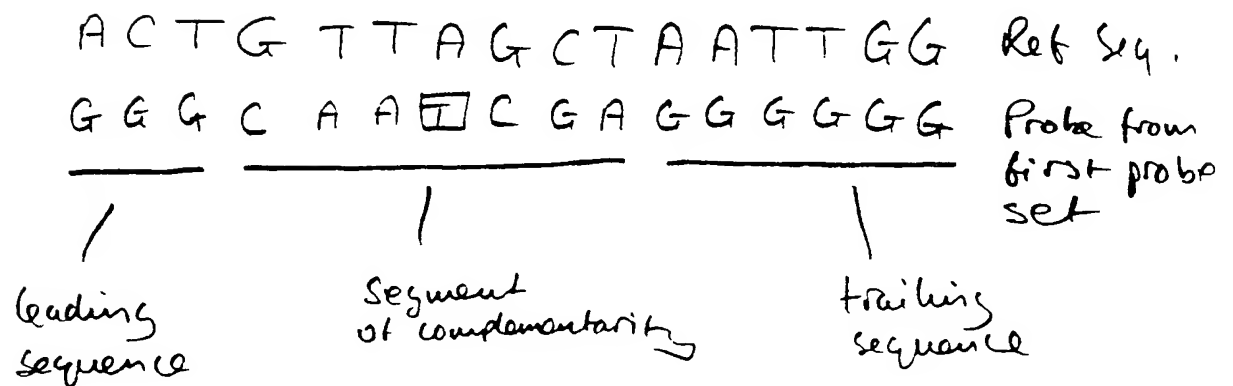 A C T G T T A G C T A A T T G G Ref Seq.
G G G C A A T C G A G G G G G G Probe from
first probe
set
leading
sequence
Segment
of complementarity
trailing
sequence